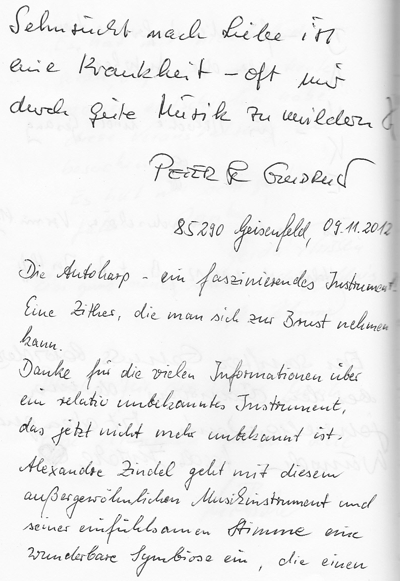 Sehnsucht nach Liebe ist
eine Krankheit – oft nur
durch gute Musik zu mildern
PETER & GUDRUN
85290 Geisenfeld, 09.11.2012
Die Autoharp – ein faszinierendes Instrument.
Eine Zither, die man sich zur Brust nehmen
kann.
Danke für die vielen Informationen über
ein relativ unbekanntes Instrument,
das jetzt nicht mehr unbekannt ist.
Alexandre Zindel geht mit diesem
außergewöhnlichen Musikinstrument und
seiner einfühlsamen Stimme eine
wunderbare Symbiose ein, die einen